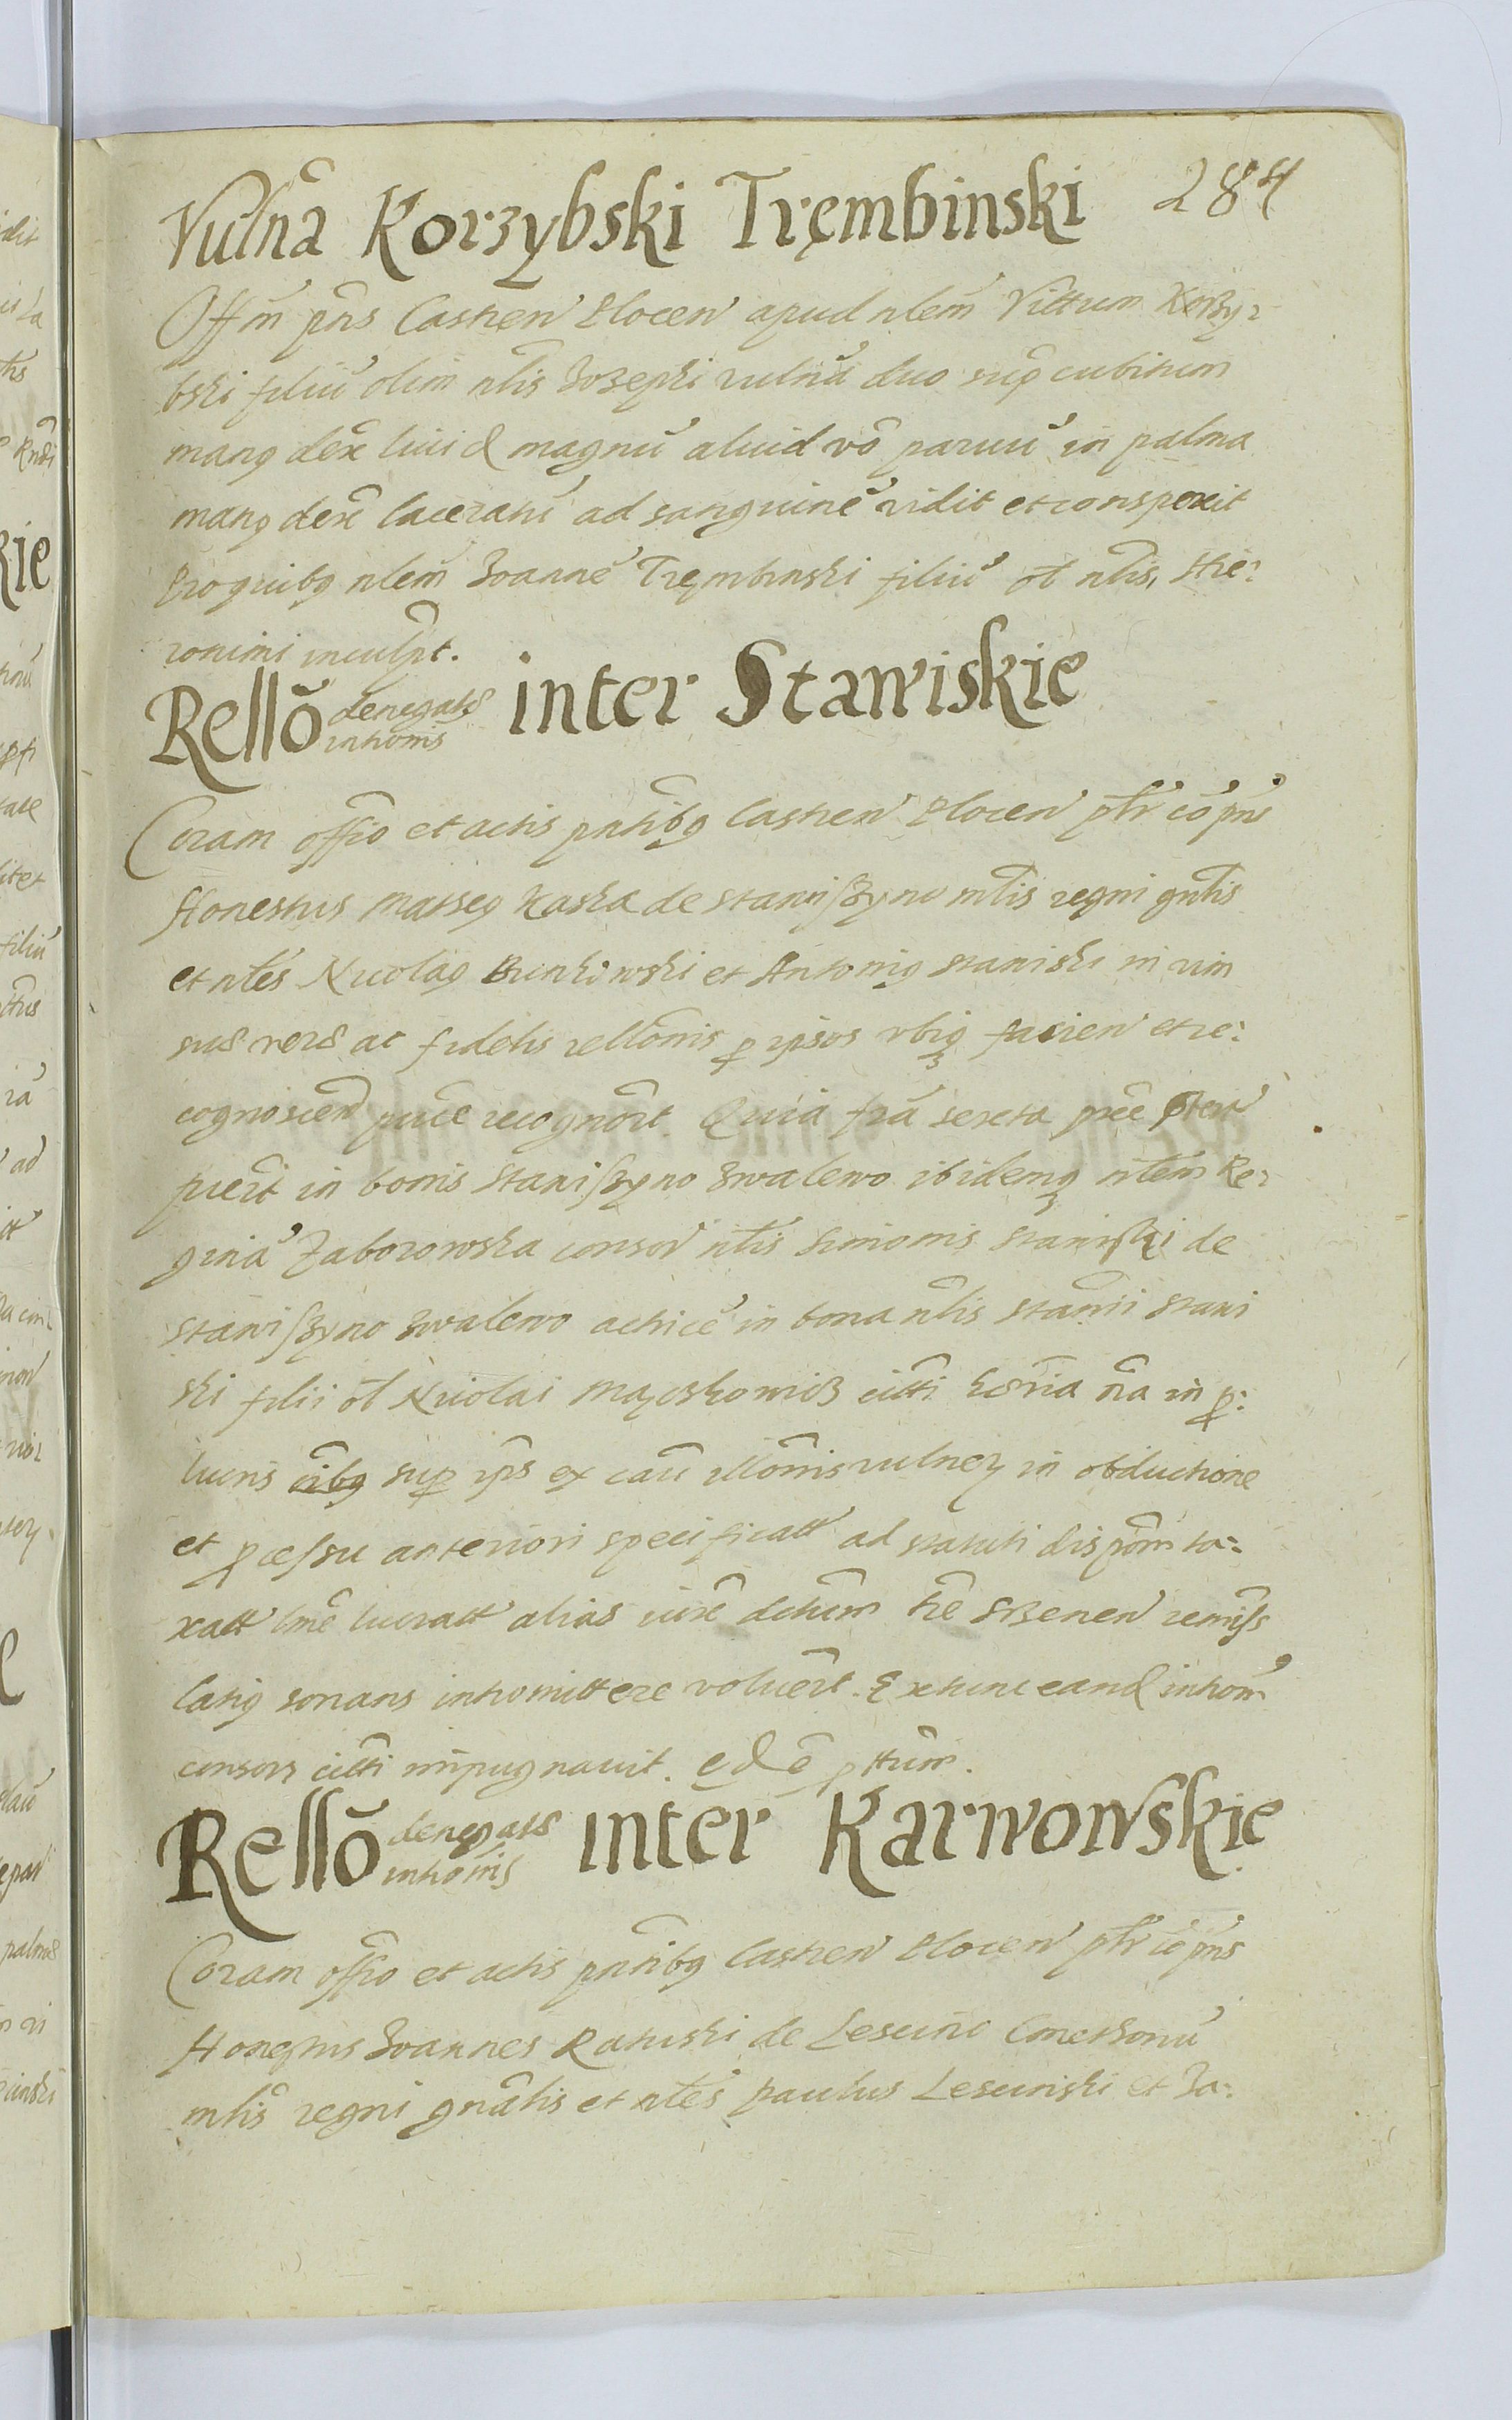 284
Vulña Korzybski Trembinski
Offm̃ pñs Castren̄ Plocen̄ apud nlem̃ Vittum Korzy:
bski filiũ olim nl̃is Jozephi vulnã duo sup̃ cubitum
man9 dex̃ livid magnũ aliud võ paruũ in palma
man9 dex̃ laceratũ ad sanguinẽ vidit et conspexit
Pro quib9 nlem̃ Joannẽ Trembinski filiũ ol̃ nl̃is, Hie:
ronimi inculp̃t.
Rellõ denegatæ intromis̃ inter Stawiskie
Coram offo et actis pñtib9 Castren̄ Plocen̄ pl̃r cõ pñs
Honestus Matse9 Kaska de Stawiszyno ml̃is regni gnl̃is
et nl̃es Nicola9 Bunkowski et Antoni9 Stawiski in vim
suæ veræ ac fidelis rellõnis p ipsos ubiq3 facien̄ et re:
cognoscen̄ pũce recognõrt. Quia fr̃a sexta pr̃ce
fuer̃t in bonis Stawiszyno Zwalewo ibidemq3 nlem̃ Re:
ginã Zaborowska consor̄ nl̃is Simonis Stawiski de
Stawiszyno Zwalewo actricẽ in bona nl̃is Stanĩi Stawi
ski filii ol̃ Nicolai citt̃i in p:
lucris sup ip̃s ex cau illõnis vulner in obductione
et p cessu anteriori specificatt ad statuti dispom̃ ta:
xatt lucratt alias iure remiss̃
lati9 sonans intromittere voluer̃t. Extunc eand intrõm
consors citti impugnavit.
Rellõ denegatæ intrõis̃ inter Karwowskie
Coram offo et actis pñtib9 Castren̄ Plocen̄ pl̃r cõ pñs
Honestus Joannes Ratuski de Lesuno Cmethonũ
ml̃is regni gnãlis et nl̃es Paulus Lesunski et Ja: